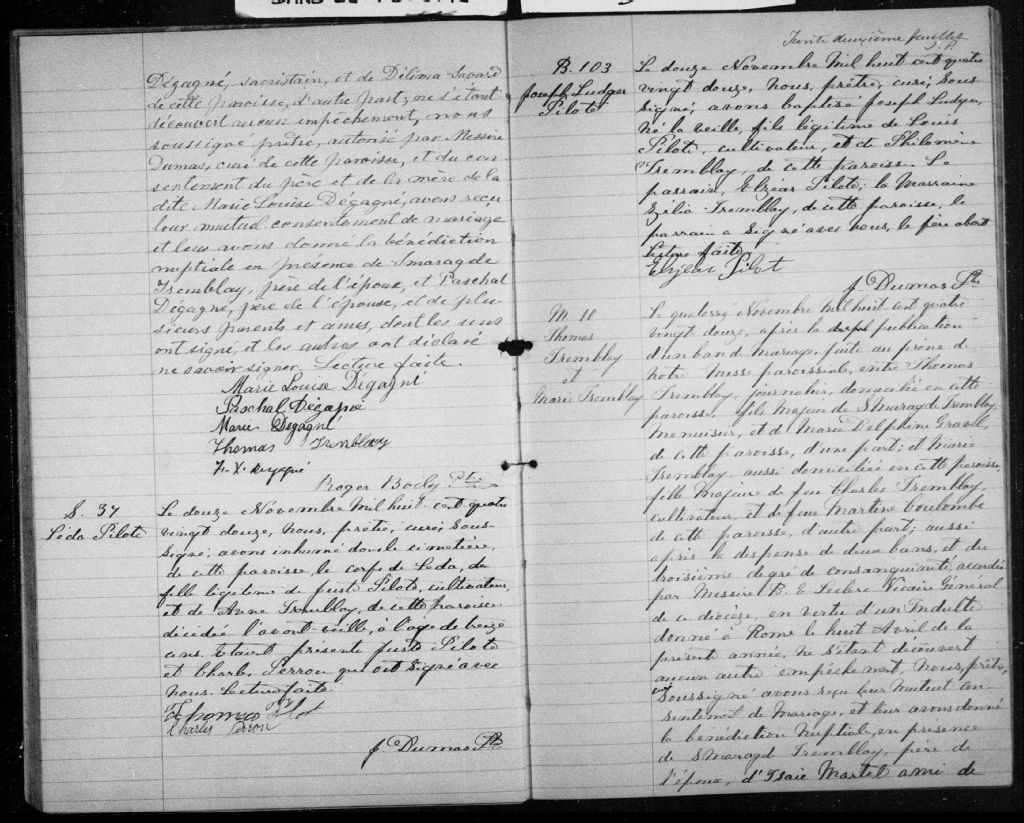 Dégagné, sacristain, et de Délima Savard
de cette paroisse, d'autre part; ne s'étant
découvert aucun empêchement, nous
soussigné prêtre, autorisé par Messire
Dumas, curé de cette paroisse, et du con-
sentement du père et de la mère de la
dite Marie Louise Dégagné, avons reçu
leur mutuel consentement de mariage
et leur avons donné la bénédiction
nuptiale en présence de Smaragde
Tremblay, père de l'époux, et Paschal
Dégagné, père de l'épouse, et de plu-
sieurs parents et amis, dont les uns
ont signé, et les autres ont déclaré
ne savoir signer. Lecture faite.
Marie Louise Dégagné
Paschal Dégagné
Marie Degagné
Thomas Tremblay
F. X. Degagné
Roger Boily Ptre
S. 37
Léda Pilote
Le douze Novembre Mil huit cent quatre
vingt douze, Nous, prêtre, curé, Sous-
signé, avons inhumé dans le cimetière,
de cette paroisse, le corps de Léda,
fille légitime de Juste Pilote, cultivateur,
et de Anne Tremblay, de cette paroisse
décédée l'avant-veille, à l'age de treize
ans. Etaient présents Juste Pilote
et Charles Perron qui ont signé avec
nous. Lecture faite.
Pilot
Charles Perron
J Dumas Ptre
Trente deuxième feuillet
J. P.
B. 103
Joseph Ludger
Pilote
Le douze Novembre Mil huit cent quatre
vingt douze, Nous, prêtre, curé, Sous-
signé, avons baptisé Joseph Ludger,
Né la veille, fils légitime de Louis
Pilote, cultivateur, et de Philomène
Tremblay, de cette paroisse. Le
parrain, Elzéar Pilote; la Marraine
Zélia Tremblay, de cette paroisse, le
parrain a signé avec nous, le père absent
Lecture faite
Elzéar Pilot
J Dumas Ptre
M. 10
Thomas
Tremblay
et
Marie Tremblay
Le quatorze Novembre Mil huit cent quatre
vingt douze, après la publication
d'un ban de Mariage, faite au prône de
Notre Messe paroissiale, entre Thomas
Tremblay, journalier, domicilié en cette
paroisse, fils Majeur de Smaragde Tremblay,
Menuisier, et de Marie Delphine Gravel,
de cette paroisse, d'une part; et Marie
Tremblay aussi domiciliée en cette paroisse,
fille Majeure de feu Charles Tremblay,
cultivateur, et de feue Martine Coulombe
de cette paroisse, d'autre part; aussi
après la dispense de deux bans, et du
troisième degré de consanguinité, accordée
par Messire B. E. Leclerc Vicaire Général
de ce diocèse, en vertu d'un Indulte
donné à Rome le huit Avril de la
présent année, ne s'étant découvert
aucun autre empêchement, Nous, prêtre,
Soussigné avons reçu leur Mutuel con-
sentement de Mariage, et leur avons donné
la bénédiction Nuptiale, en présence
de Smaragde Tremblay, père de
l'époux, d'Isaïe Martel ami de